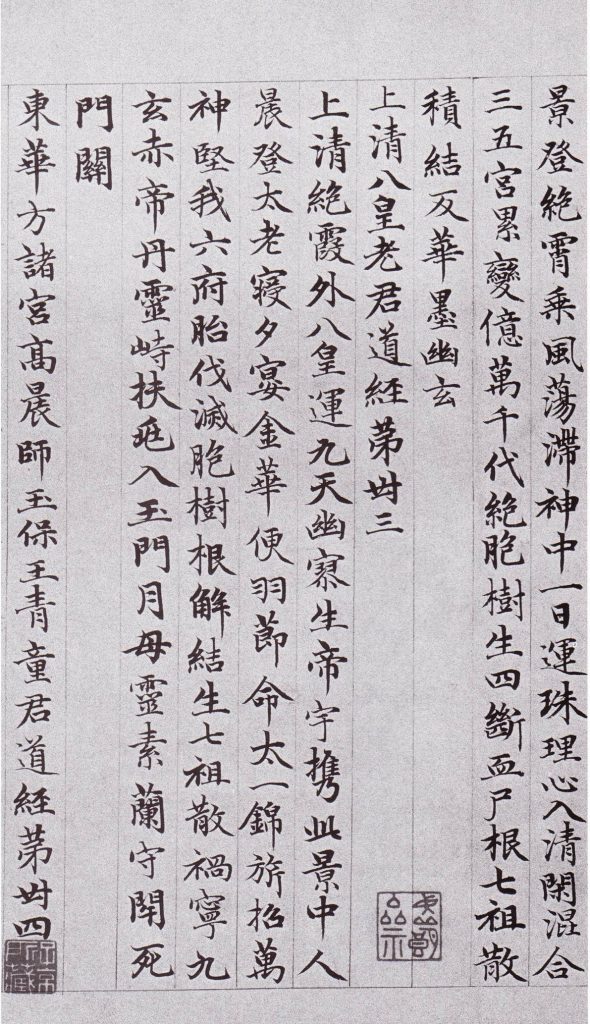 景登絶霄乘風蕩滯神中一日運珠理心入清閑混合
三五宮累變億萬千代絶胞樹生四斷血尸根七祖散
積結反華墨幽玄
上清八皇老君道經第卅三
上清絶霞外八皇運九天幽寥生帝宇携此景中人
晨登太老寝夕宴金華便羽節命太一錦旂招萬
神堅我六府胎伐滅胞樹根解結生七祖散禍寧九
玄赤帝丹靈峙扶延入玉門月母靈素蘭守閇死
門關
東華方諸宮髙晨師玉保王青童君道經第卅四